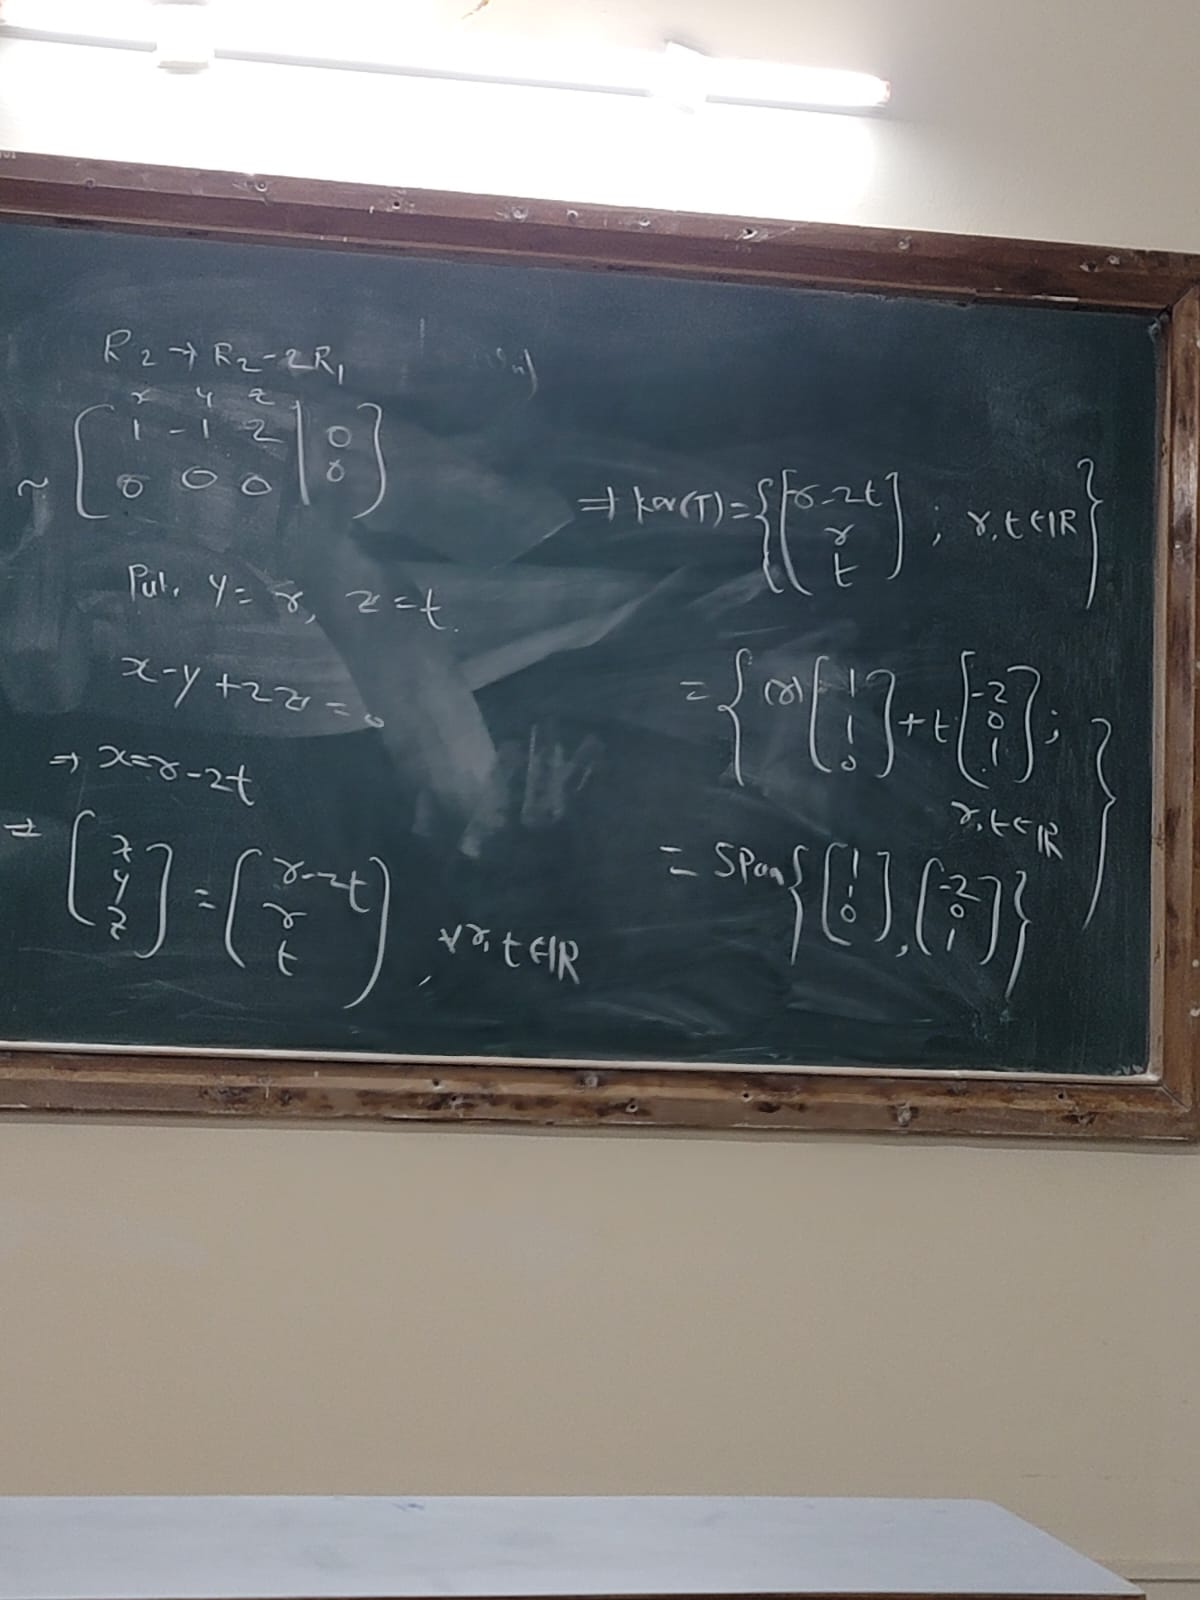 R2 → R2 - 2R1
x y z
~ [ 1 -1 2 | 0
0 0 0 | 0 ]
Put, y = r, z = t.
x - y + 2z = 0
⇒ x = r - 2t
⇒ [ x
y
z ] = ( r - 2t
r
t ), ∀ r, t ∈ IR
⇒ ker(T) = { [ r - 2t
r
t ] ; r, t ∈ IR }
= { (r) [ 1
1
0 ] + t [ -2
0
1 ] ;
r, t ∈ IR }
= Span { [ 1
1
0 ], [ -2
0
1 ] }